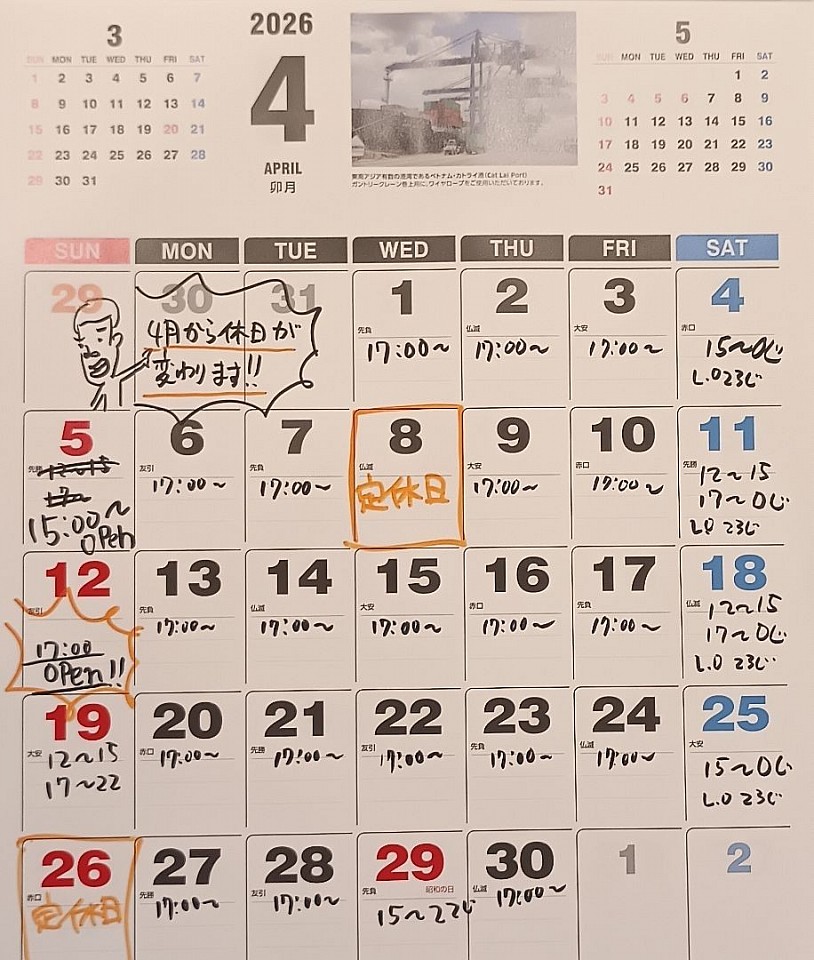 3
SUN MON TUE WED THU FRI SAT
1 2 3 4 5 6 7
8 9 10 11 12 13 14
15 16 17 18 19 20 21
22 23 24 25 26 27 28
29 30 31
2026
4
APRIL
卯月
東南アジア有数の港湾であるベトナム・カトライ港(Cat Lai Port)
ガントリークレーン巻上用に、ワイヤロープをご使用いただいております。
5
SUN MON TUE WED THU FRI SAT
1 2
3 4 5 6 7 8 9
10 11 12 13 14 15 16
17 18 19 20 21 22 23
24 25 26 27 28 29 30
31
SUN MON TUE WED THU FRI SAT
29 30 31
4月から休日が
変わります!!
1
先負
17:00~
2
仏滅
17:00~
3
大安
17:00~
4
赤口
15~0じ
L.O23じ
5
先勝
12~15
17~
15:00~
OPen
6
友引
17:00~
7
先負
17:00~
8
仏滅
定休日
9
大安
17:00~
10
赤口
17:00~
11
先勝
12~15
17~0じ
L.O 23じ
12
友引
17:00
OPen!!
13
先負
17:00~
14
仏滅
17:00~
15
大安
17:00~
16
赤口
17:00~
17
先負
17:00~
18
仏滅
12~15
17~0じ
L.O 23じ
19
大安
12~15
17~22
20
赤口
17:00~
21
先勝
17:00~
22
友引
17:00~
23
先負
17:00~
24
仏滅
17:00~
25
大安
15~0じ
L.O 23じ
26
赤口
定休日
27
先勝
17:00~
28
友引
17:00~
29
先負
昭和の日
15~22じ
30
仏滅
17:00~
1
2